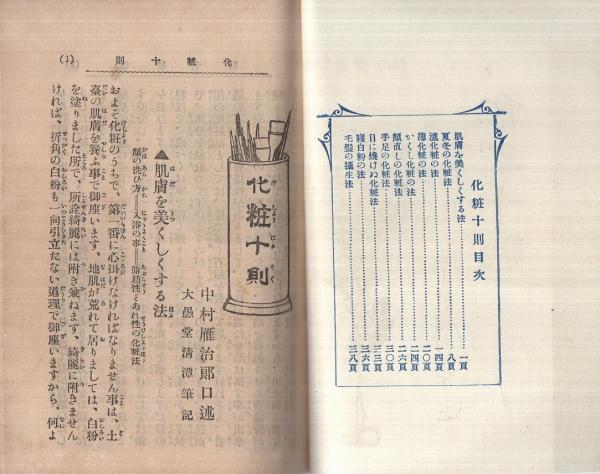 化粧十則目次
肌膚を美くしくする法……一頁
夏冬の化粧法……八頁
濃化粧の法……一四頁
薄化粧の法……二〇頁
かくし化粧の法……二四頁
顔直しの化粧法……二六頁
手足の化粧法……三一頁
日に焼けぬ化粧法……三三頁
寝白粉の法……三六頁
毛髪の攝生法……三八頁
化粧十則
(1)
化粧十則
中村雁治郎口述
大愚堂清潭筆記
▲肌膚を美くしくする法
顔の洗ひ方＝入浴の事＝脂肪性とあれ性の化粧法
およそ化粧のうちで、第一番に心掛けなければなりません事は、土
臺の肌膚を養ふ事で御座います、地肌が荒れて居りましては、白粉
を塗りました所で、所詮綺麗には附き兼ねます、綺麗に附きません
ければ、折角の白粉も一向引立たない道理で御座いますから、何よ